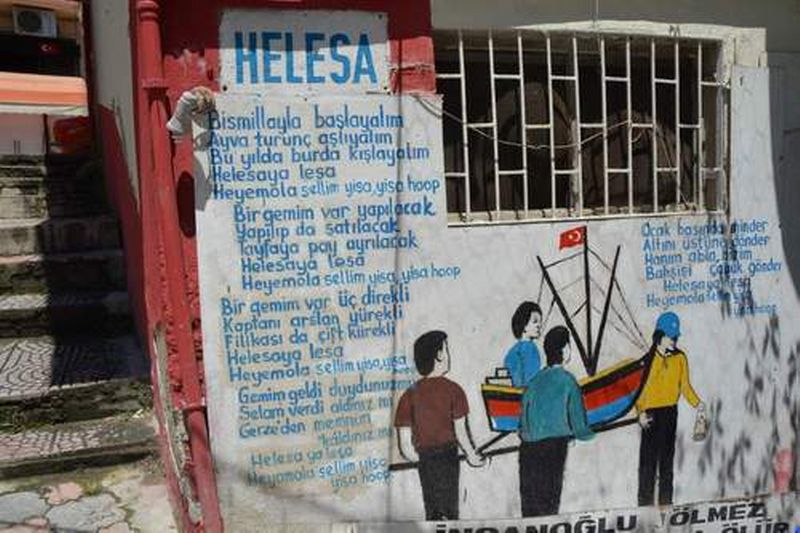 HELESA
Bismillayla başlayalım
Ayva turunç aşlıyalım
Bu yılda burda kışlayalım
Helesaya lesa
Heyemola sellim yisa, yisa hoop
Bir gemim var yapılacak
Yapılıp da satılacak
Tayfaya pay ayrılacak
Helesaya lesa
Heyemola sellim yisa, yisa hoop
Bir gemim var üç direkli
Kaptanı arslan yürekli
Filikası da çift kürekli
Helesaya lesa
Heyemola sellim yisa, yisa
Gemim geldi duydunuz mu
Selam verdi aldınız mı
Gerze'den memnun
kaldınız mı
Helesa ya lesa
Heyamola sellim yisa
yisa hoop
Ocak başında minder
Altını üstüne gönder
Hanım abla bizim
Bahşişi çabuk gönder
Helesaya lesa
Heyemola sellim yisa
yisa hoop
İNSANOĞLU ÖLMEZ
ÖLÜR